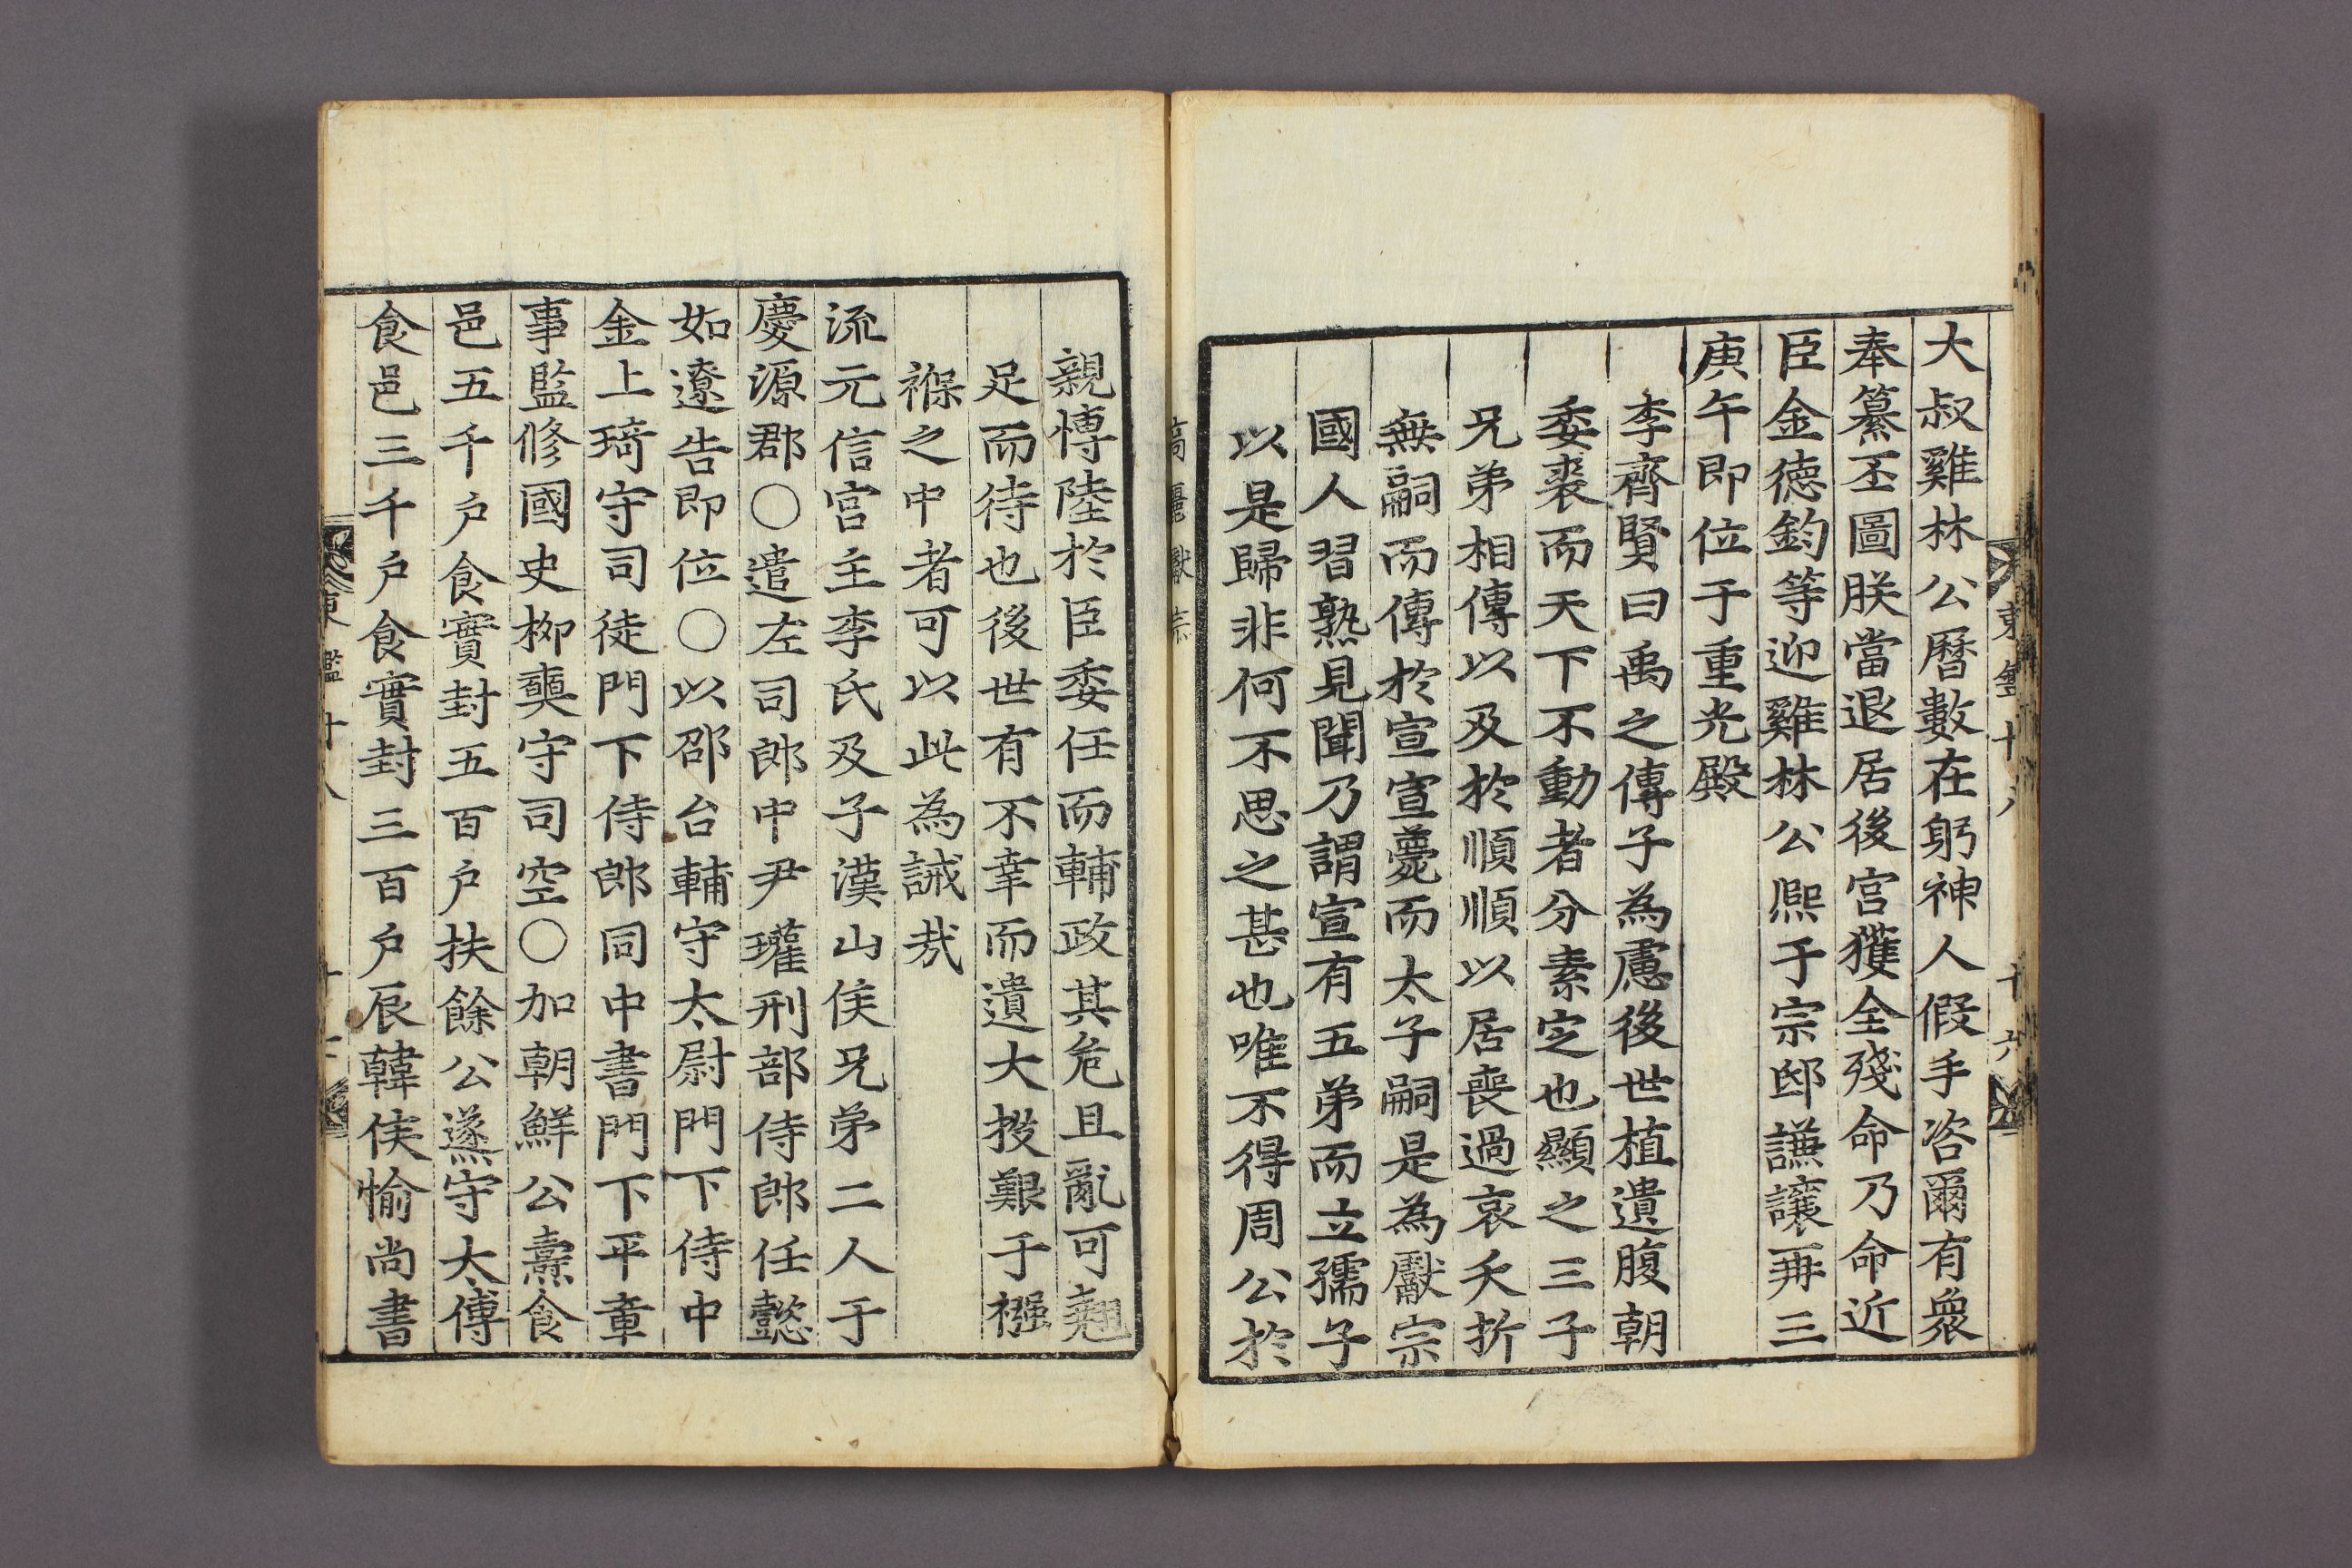 大叔雞林公曆數在躬神人假手咨爾有衆
奉纂丕圖朕當退居後宮獲全殘命乃命近
臣金德鈞等迎雞林公熙于宗邸謙讓再三
庚午即位于重光殿
李齊賢曰禹之傳子為慮後世植遺腹朝
委裘而天下不動者分素定也顯之三子
兄弟相傳以及於順順以居喪過哀夭折
無嗣而傳於宣宣薨而太子嗣是為獻宗
國人習熟見聞乃謂宣有五弟而立孺子
以是歸非何不思之甚也唯不得周公於
親博陸於臣委任而輔政其危且亂可翹
足而待也後世有不幸而遺大投艱于襁
褓之中者可以此為誡哉
流元信宮主李氏及子漢山侯兄弟二人于
慶源郡○遣左司郎中尹瓘刑部侍郎任懿
如遼告即位○以邵台輔守太尉門下侍中
金上琦守司徒門下侍郎同中書門下平章
事監修國史柳奭守司空○加朝鮮公燾食
邑五千戶食實封五百戶扶餘公㸂守太傅
食邑三千戶食實封三百戶辰韓侯愉尚書